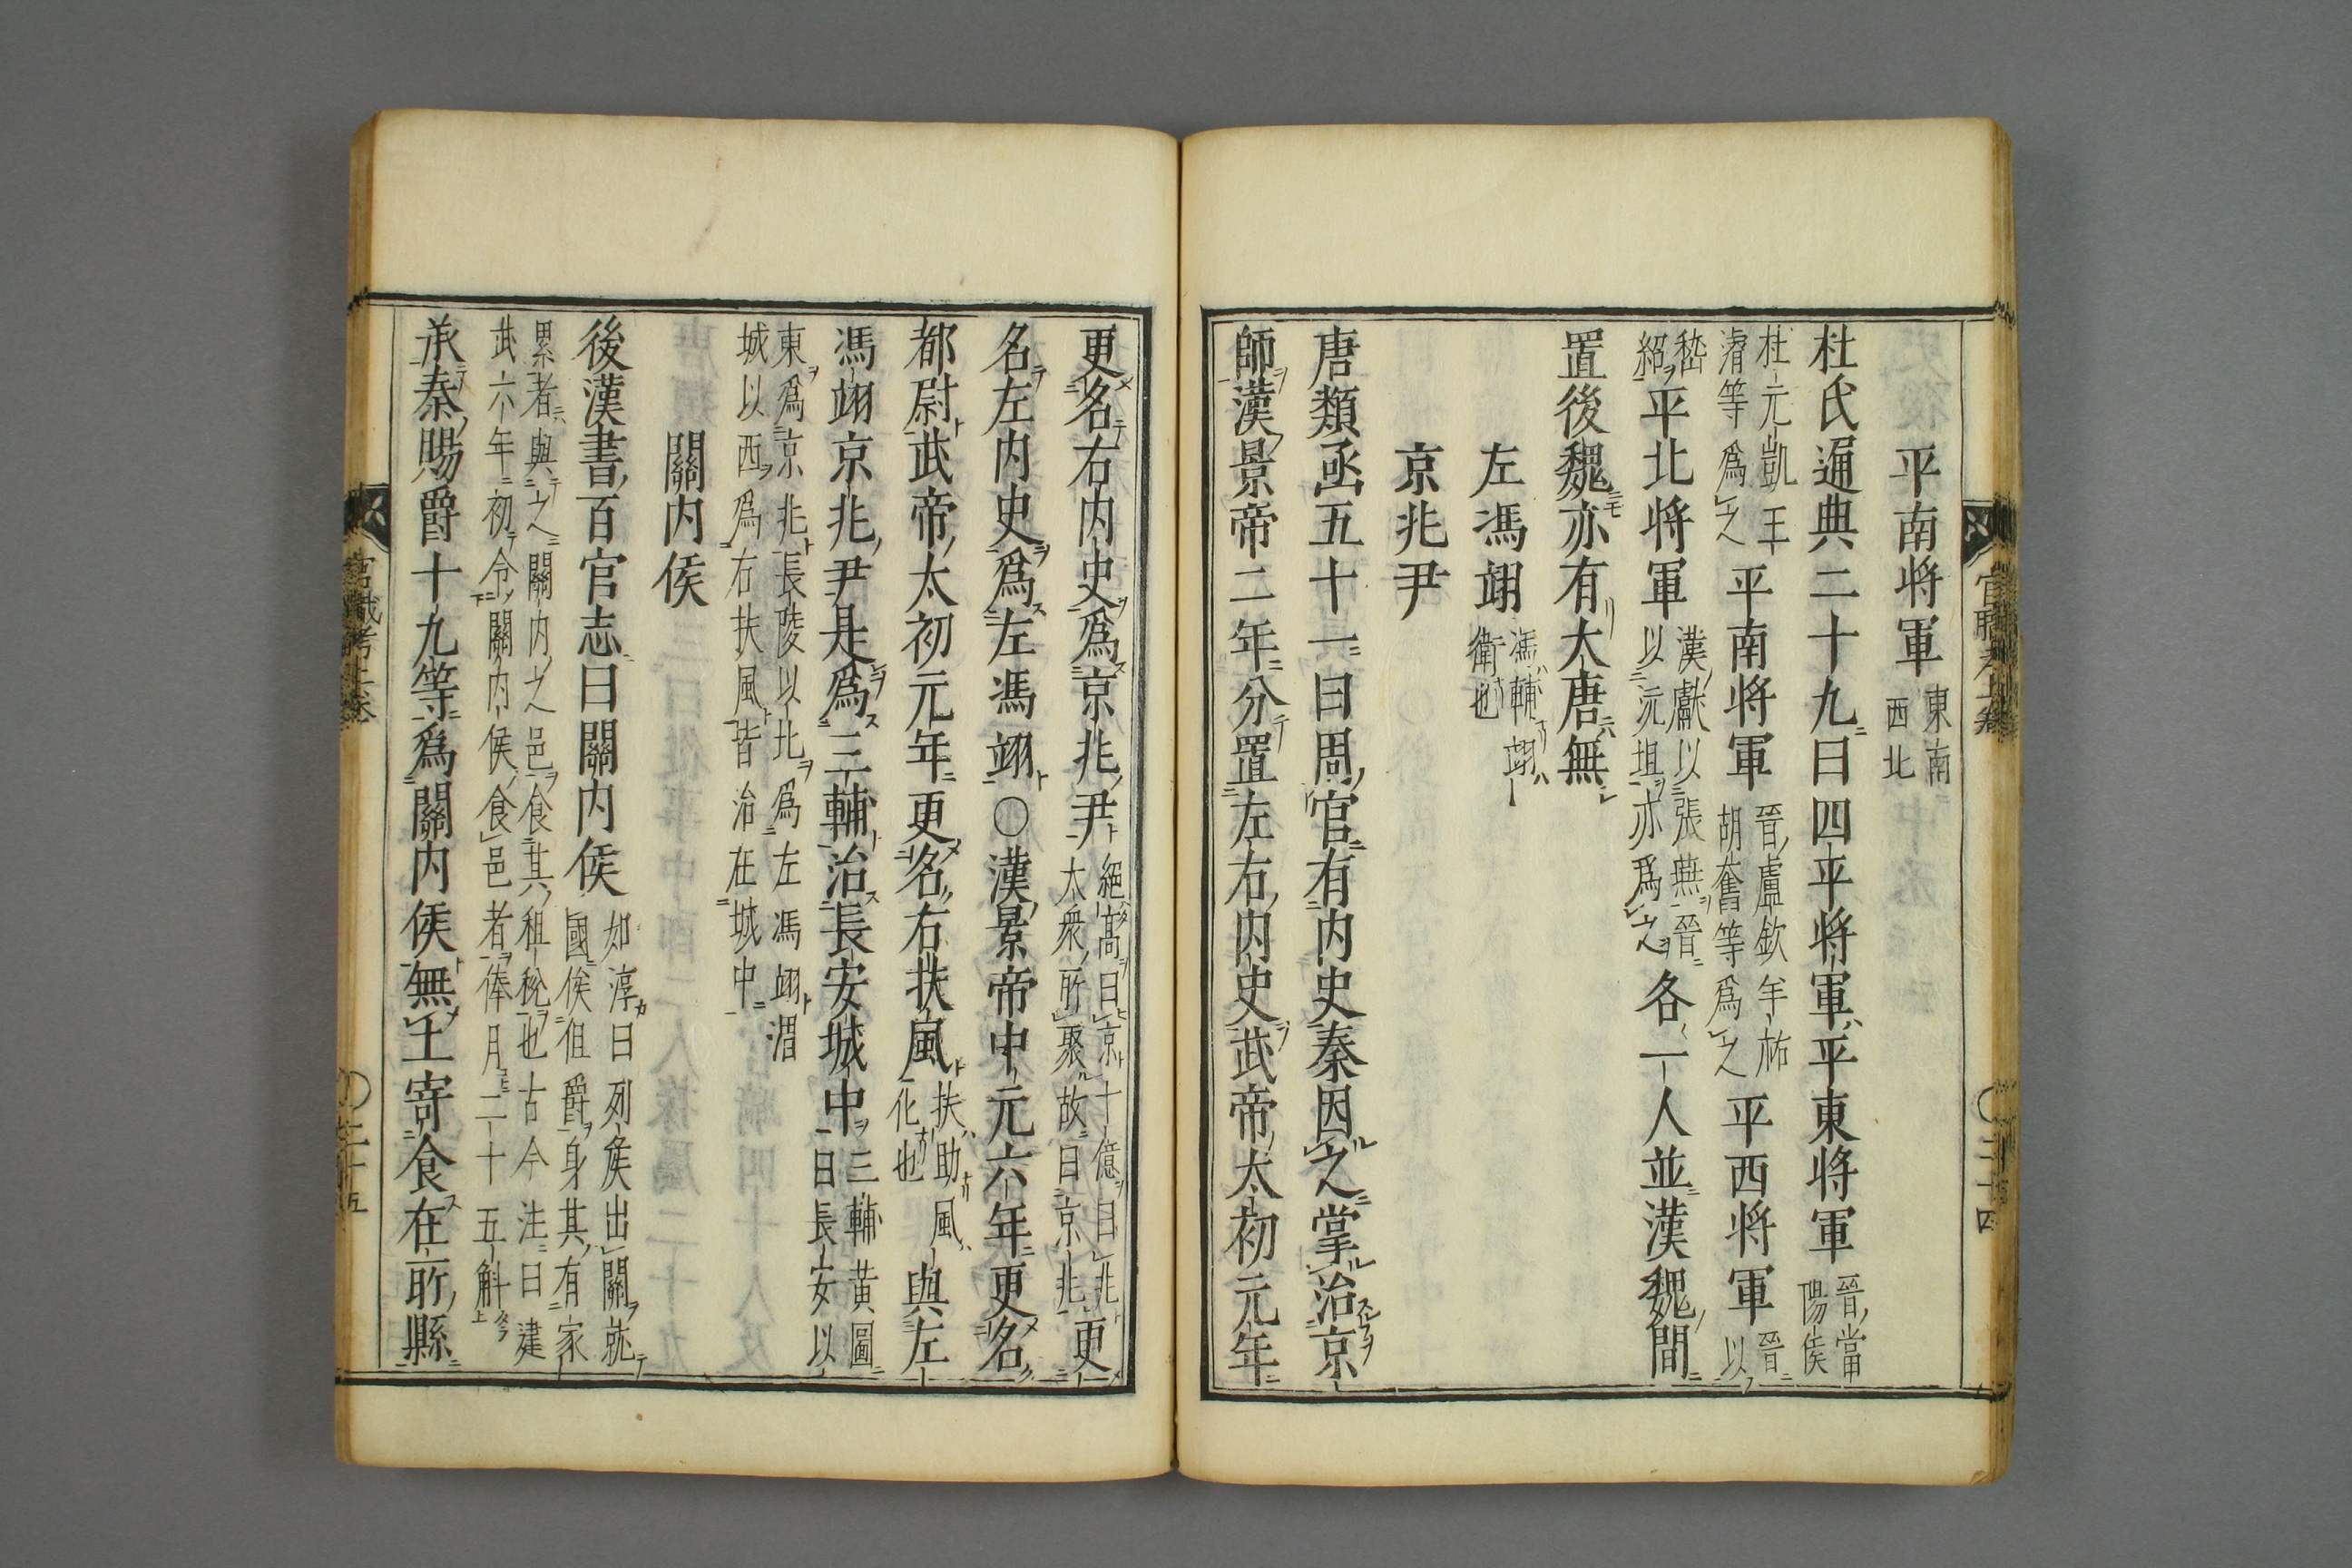 平南将軍 東南西北
杜氏通典二十九曰四平将軍平東将軍 晉當陽侯
杜元凱王濬等爲之 平南将軍 晉盧欽羊祜胡奮等爲之 平西将軍 晉以
嵇紹 平北将軍 漢獻以張燕晉以沅坦亦爲之 各一人並漢魏間
置後魏亦有大唐無
左馮翊 馮輔翊衛也
京兆尹
唐類函五十一曰周官有内史秦因之掌治京
師漢景帝二年分置左右内史武帝太初元年
更名右内史爲京兆尹 絕高曰京十億曰兆大衆所聚故曰京兆 更
名左内史爲左馮翊○漢景帝中元六年更名
都尉武帝太初元年更名右扶風 扶助風化也 與左
馮翊京兆尹是爲三輔治長安城中 三輔黄圖曰長安以
東爲京兆長陵以北爲左馮翊渭城以西爲右扶風皆治在城中
關内侯
後漢書百官志曰關内侯 如淳曰列侯出關就國侯但爵身其有家
累者與之關内之邑食其租稅也古今注曰建武六年初令關内侯食邑者俸月二十五斛
承秦賜爵十九等爲關内侯無土寄食在所縣
官職考上卷
○二十四
官職考上卷
○二十五